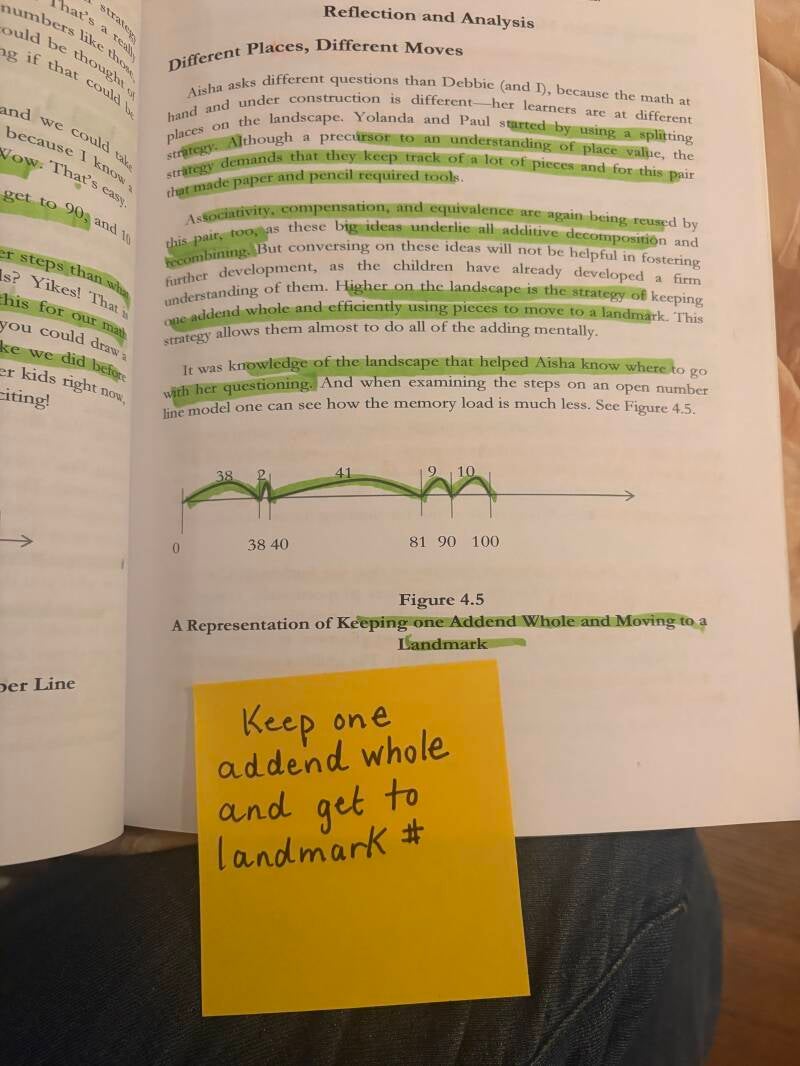 strategy
That's a really
numbers like those,
ould be thought of
ng if that could be
and we could take
because I know a
Wow. That's easy.
get to 90, and 10
er steps than what
ls? Yikes! That is
this for our math
you could draw a
ke we did before
er kids right now,
citing!
per Line
Reflection and Analysis
Different Places, Different Moves
Aisha asks different questions than Debbie (and I), because the math at
hand and under construction is different—her learners are at different
places on the landscape. Yolanda and Paul started by using a splitting
strategy. Although a precursor to an understanding of place value, the
strategy demands that they keep track of a lot of pieces and for this pair
that made paper and pencil required tools.
Associativity, compensation, and equivalence are again being reused by
this pair, too, as these big ideas underlie all additive decomposition and
recombining. But conversing on these ideas will not be helpful in fostering
further development, as the children have already developed a firm
understanding of them. Higher on the landscape is the strategy of keeping
one addend whole and efficiently using pieces to move to a landmark. This
strategy allows them almost to do all of the adding mentally.
It was knowledge of the landscape that helped Aisha know where to go
with her questioning. And when examining the steps on an open number
line model one can see how the memory load is much less. See Figure 4.5.
38 2 41 9 10
0 38 40 81 90 100
Figure 4.5
A Representation of Keeping one Addend Whole and Moving to a
Landmark
Keep one
addend whole
and get to
landmark #